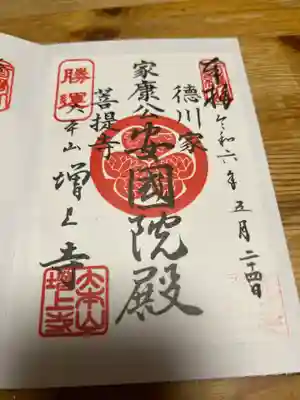 奉拝
令和六年五月二十四日
徳川家
菩提寺
家康公安國院殿
大本山
増上寺
勝運
大本山増上寺